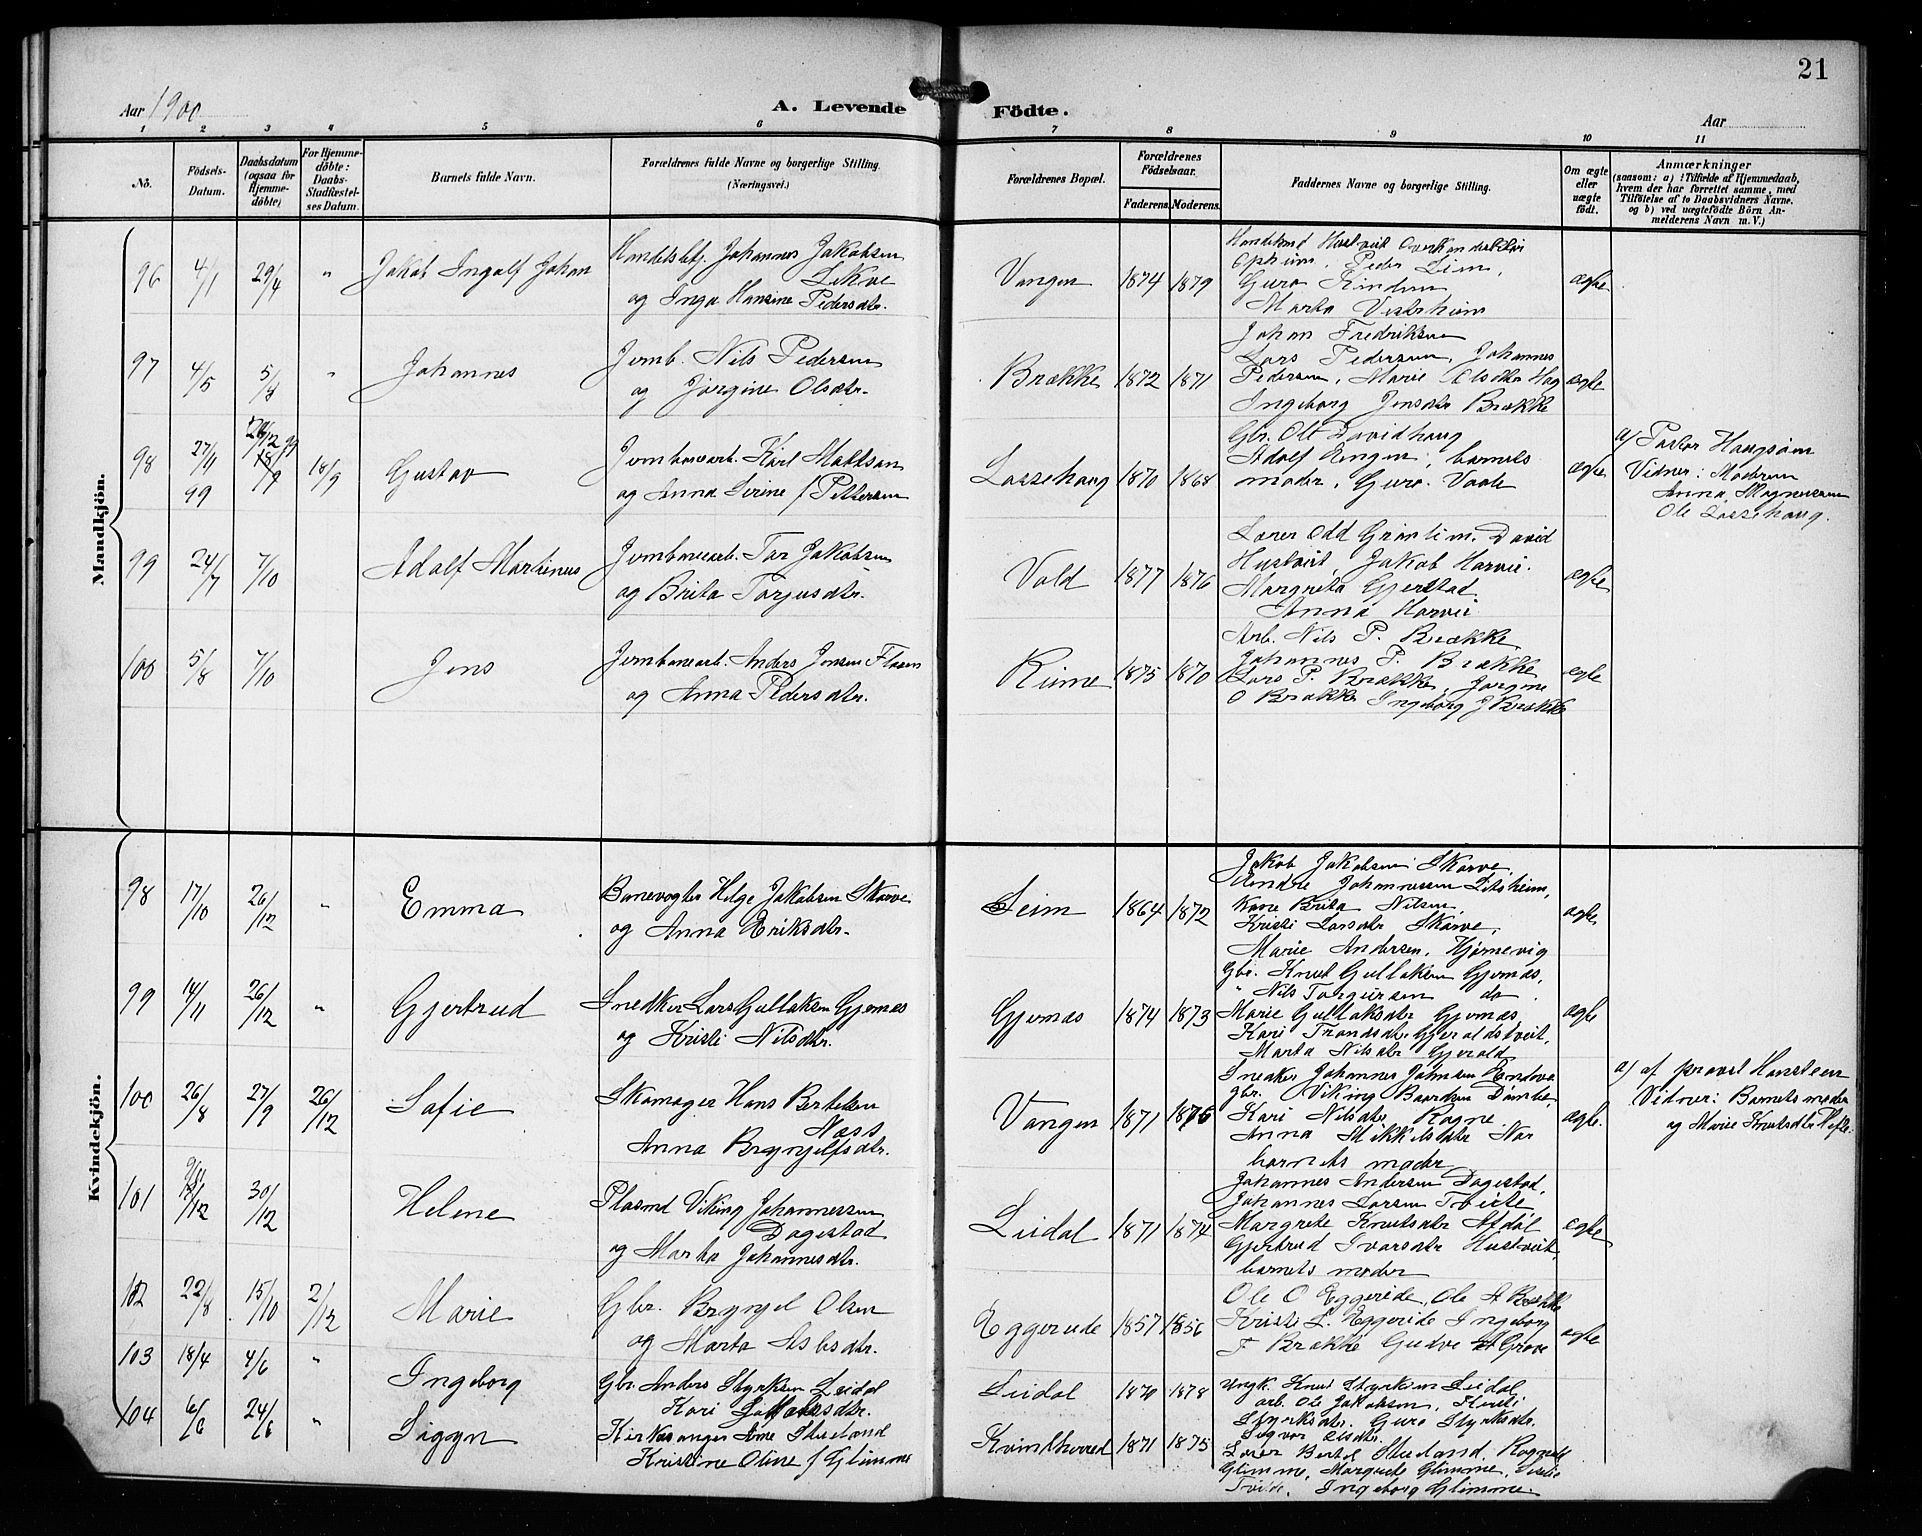 21
Aar 1900
A. Levende
Födte.
Aar
1 2 3 4 5 6 7 8 9 10 11
No.
Födsels-Datum.
Daabsdatum (ogsaa for Hjemme-döbte)
For Hjemme-döbte: Daabs-Stadfæstel-ses Datum.
Barnets fulde Navn.
Forældrenes fulde Navne og borgerlige Stilling.
(Næringsvei.)
Forældrenes Bopæl.
Forældrenes Födselsaar.
Faderens. Moderens.
Faddernes Navne og borgerlige Stilling.
Om ægte eller uægte födt.
Anmærkninger
(saasom: a) i Tilfælde af Hjemmedaab,
hvem der har forrettet samme, med
Tilföielse af to Daabsvidners Navne.
og b) ved uægtefödte Börn An-
melderens Navn m. V.)
Mandkjön.
96 4/1 29/4 " Jakob Ingolf Johan Johannes Jakobsen
Lekve
og Inga Hansine Pedersdtr. Vangen 1874 1879 ægte
Peder Seim,
Marta
97 4/5 5/8 " Johannes Jernb. Nils Pedersen
og Jörgine Olsdtr. Brække 1872 1871 ægte
Johan Fredriksen
Lars Pedersen, Johannes
Pedersen, Marie Olsdtr Hag
Ingeborg Jensdtr Brække
98 27/11 99 18/9 Gustav Jernbanearb. Karl Mattson
og Anna Serine f Pettersen Lassehaug 1870 1868 ægte
Gbr. Ole Davidhaug
Adolf Engen, barnets
moder, Guro Vaale
a) Pastor Haugsöen
Vidner: Moderen
Anna Magnussen
Ole Lassehaug.
99 24/7 7/10 Adolf Martinus Jernbanearb. Tor Jakobsen
og Brita Torjusdtr. Vold 1877 1876 ægte
Lærer Odd Grönlien. David
Hustveit, Jakob Harvei.
Margreta Gjerstad
Anna Harvei
100 5/8 7/10 Jens Jernbanearb. Anders Jensen Flaten
og Anna Pedersdtr. Rieme 1875 1870 ægte
Arb. Nils P. Brække
Johannes P. Brække
Lars P. Brække, Jörgine
O Brække Ingeborg J Brække
Kvindekjön.
98 17/10 26/12 " Emma Banevogter Helge Jakobsen Skorve
og Anna Eriksdtr. Seim 1864 1872 ægte
Jakob Jakobsen Skorve
Andre Johannessen
Kone Brita Nilsen
Kristi Larsdtr Skorve,
Marie Andersen, Hjörnevig
99 14/11 26/12 " Gjertrud Snedker Lars Gullaksen Gjernes
og Kristi Nilsdtr. Gjernes 1874 1873 ægte
Gbr. Knut Gullaksen Gjernes,
" Nils Torgersen do
Marie Gullaksdtr Gjernes
Kari Trondsdtr. Gjeraldstveit,
Marta Nilsdtr Gjerald
100 26/8 27/9 26/12 Sofie Skomager Hans Bertelsen
Næss
Anna Brynjelfsdtr. Vangen 1871 1875 ægte.
Snedker Johannes Johnsen Endve
gbr. Viking Baardsen
Kari Nilsdtr Rogne
Anna Mikkelsdtr
barnets moder
a) af provst Hansteen
Vidner: Barnets moder
og Marie Knutsdtr
101 30/12 Helene Plasmd Viking Johannessen
Dagestad
og Marta Johannesdtr. Leidal 1871 1874 ægte
Johannes Andersen Dagestad,
Johannes Larsen Tveite,
Margrete Knutsdtr Afdal
Gjertrud Ivarsdtr Hustveit
barnets moder
102 22/8 15/10 2/12 Marie Gbr. Brynjel Olsen
og Marta Asbsdtr. Eggereide 1857 1856 ægte
Ole O Eggereide, Ole A Brække
Kristi L. Eggereide Ingeborg
T Brække Gudve A Grove
103 18/4 4/6 " Ingeborg Gbr Anders Styrksen Leidal
Kari Jakobsdtr. Leidal 1870 1878
Ungk. Knut Styrksen Leidal
arb. Ole Jakobsen,
Styrksdtr. Guro Styrksdtr.
Sigvor Olsdtr.
104 6/6 24/6 " Sigyn Kirkesanger Arne Skeeland
Kristine Oline f Glimme Kvindherred 1871 1875
Lærer Bertel Skeeland. Rognald
Glimme, Margrete Glimme,
Ingeborg Glimme.